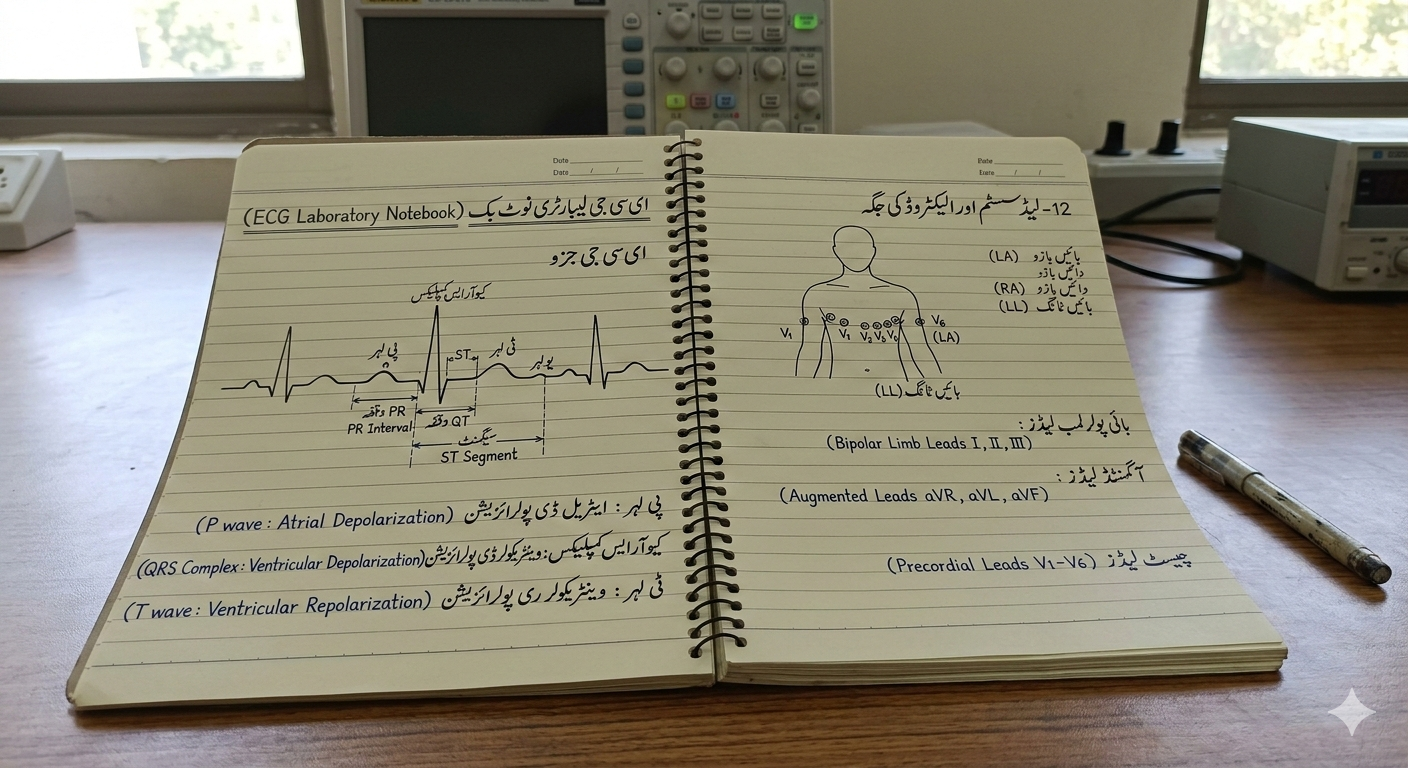 Date
Date / /
ای سی جی لیبارٹری نوٹ بک (ECG Laboratory Notebook)
ای سی جی جزو
کیو آر ایس کمپلیکس
پی لہر
ST
ٹی لہر
یو لہر
PR وقفہ
PR Interval
QT وقفہ
سیگمنٹ
ST Segment
پی لہر : ایٹریل ڈی پولرائزیشن (P wave : Atrial Depolarization)
کیو آر ایس کمپلیکس: وینٹریکولر ڈی پولرائزیشن (QRS Complex: Ventricular Depolarization)
ٹی لہر : وینٹریکولر ری پولرائزیشن (T wave : Ventricular Repolarization)
/ /
12-لیڈ سسٹم اور الیکٹروڈ کی جگہ
بائیں بازو (LA)
دائیں بازو
دائیں بازو (RA)
بائیں ٹانگ (LL)
V1
V1
V2
V6
(LA)
بائیں ٹانگ (LL)
بائی پولر لمب لیڈز :
(Bipolar Limb Leads I, II, III)
آگمنٹڈ لیڈز :
(Augmented Leads aVR, aVL, aVF)
چیسٹ لیڈز (Precordial Leads V1-V6)